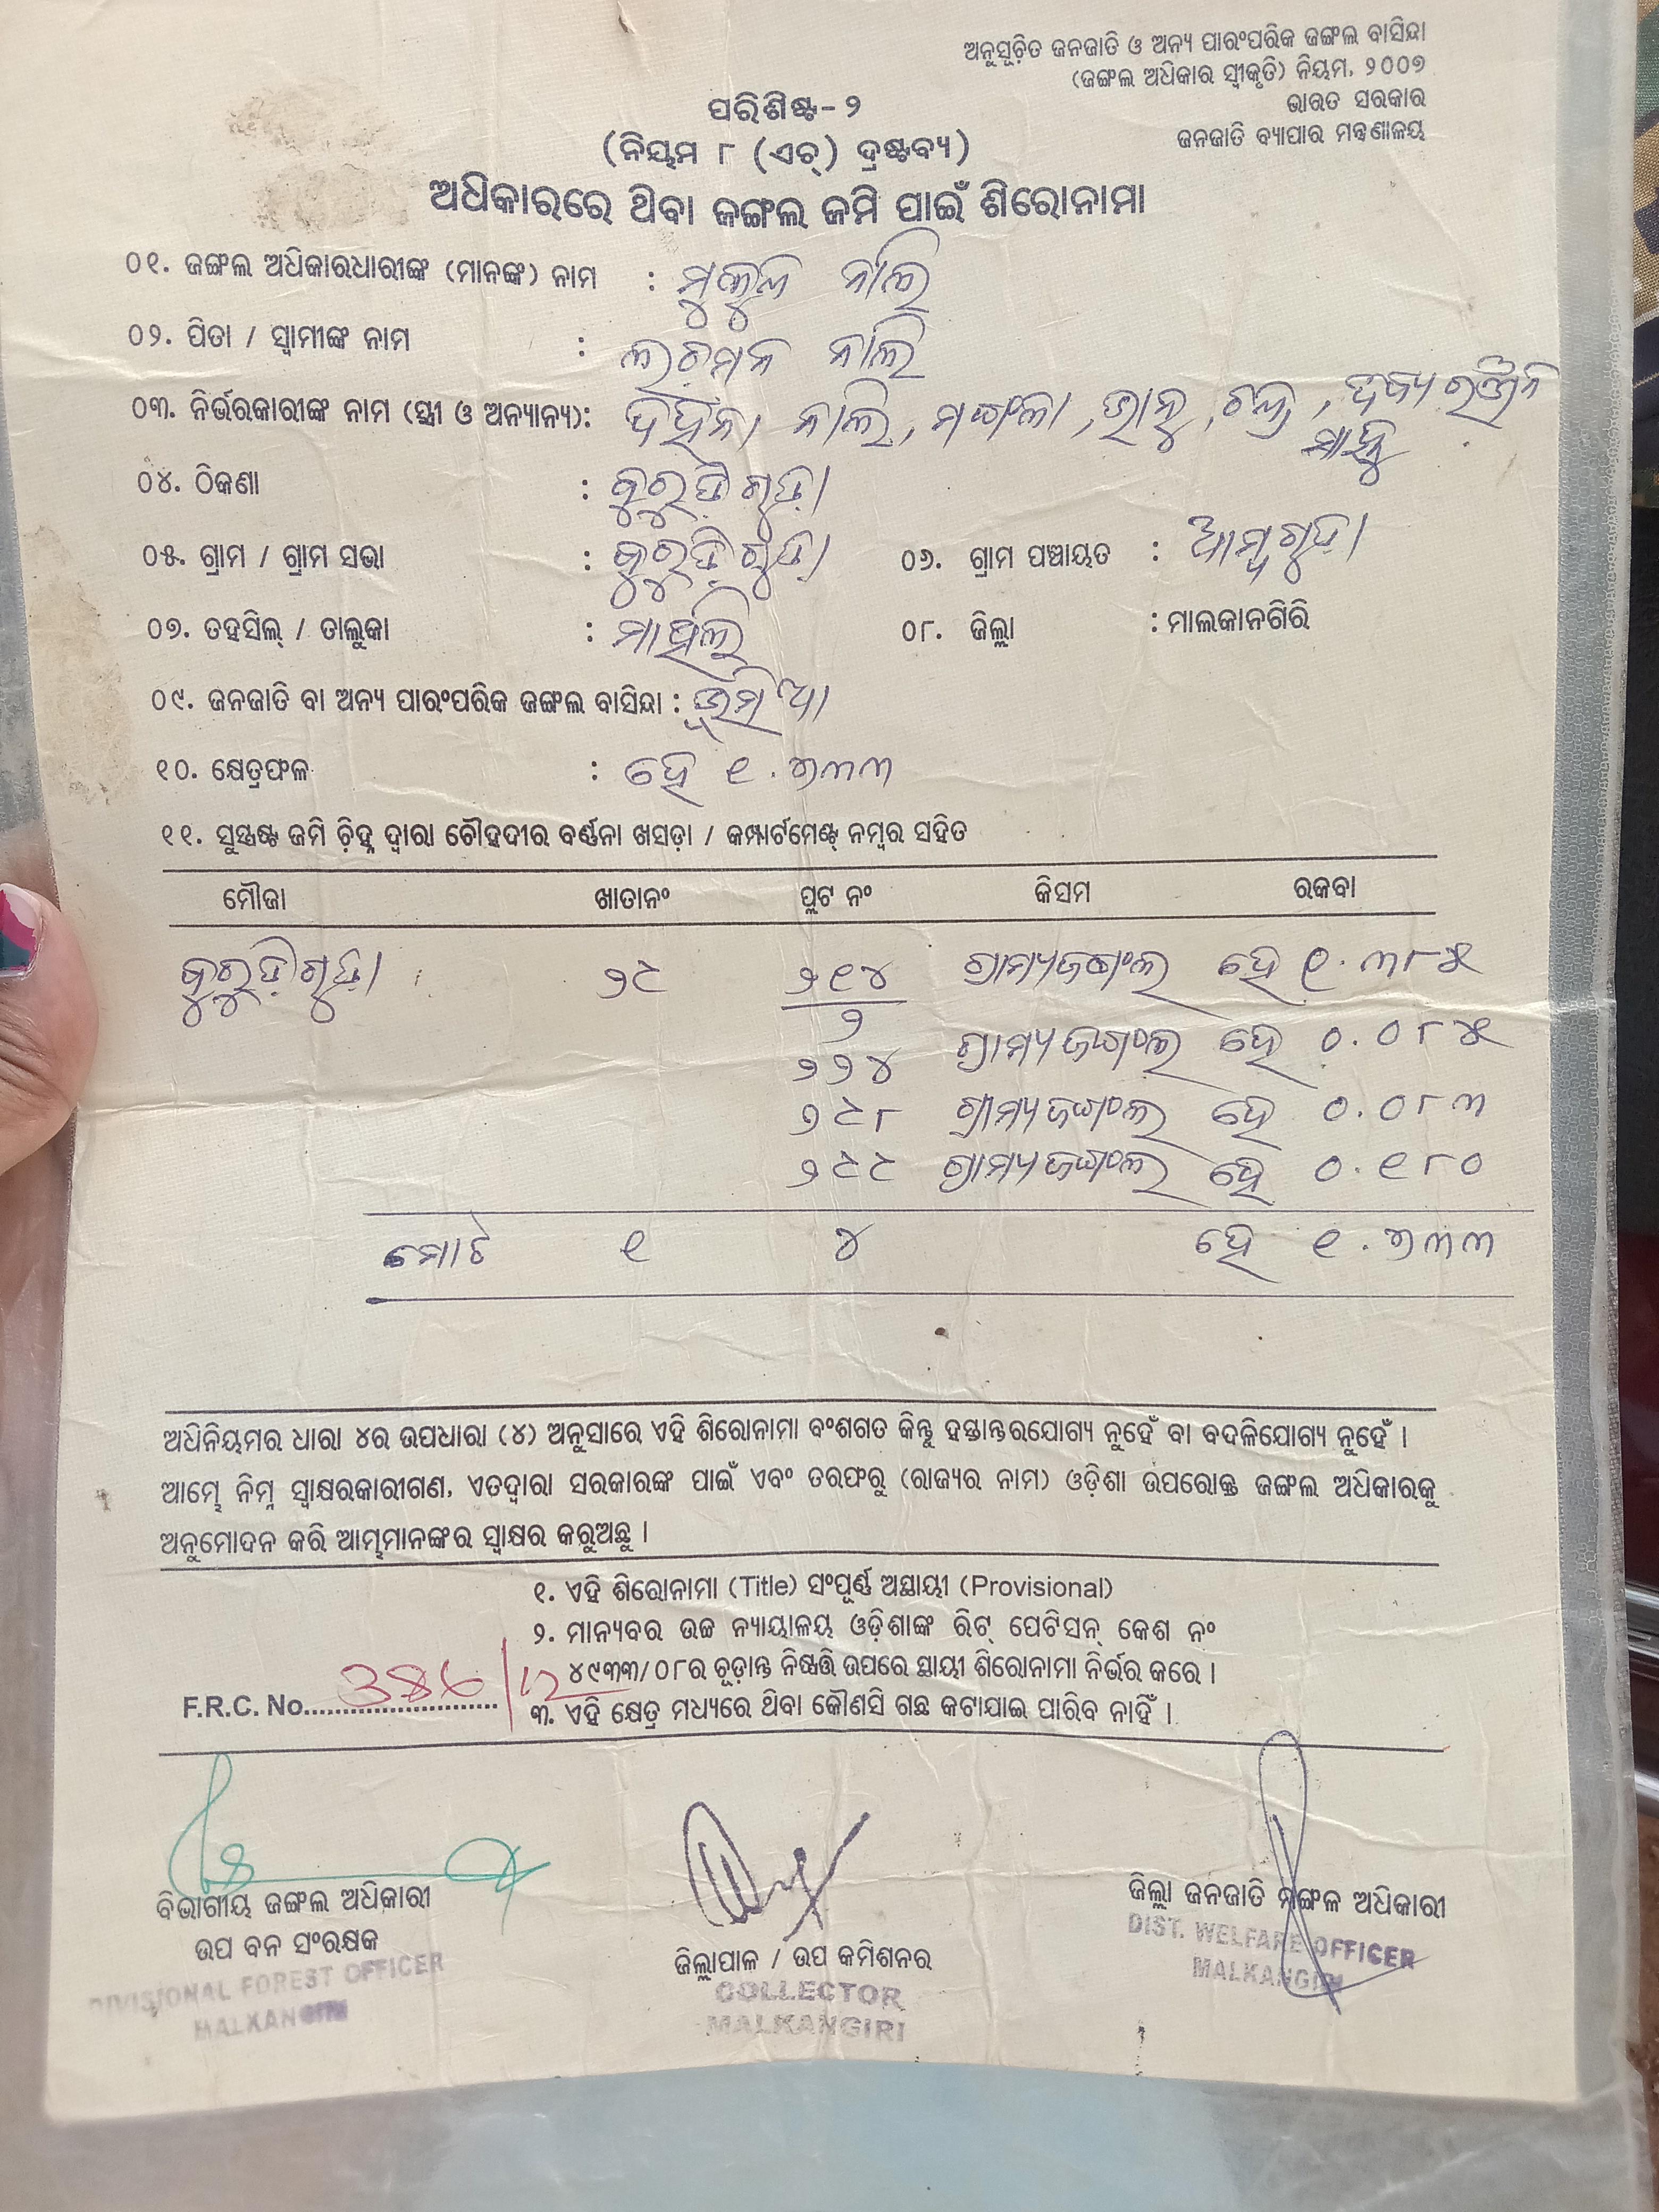 ଅନୁସୂଚିତ ଜନଜାତି ଓ ଅନ୍ୟ ପାରଂପରିକ ଜଙ୍ଗଲ ବାସିନ୍ଦା
(ଜଙ୍ଗଲ ଅଧିକାର ସ୍ୱୀକୃତି) ନିୟମ, ୨୦୦୭
ଭାରତ ସରକାର
ଜନଜାତି ବ୍ୟାପାର ମନ୍ତ୍ରଣାଳୟ
ପରିଶିଷ୍ଟ-୨
(ନିୟମ ୮ (ଏଚ୍) ଦ୍ରଷ୍ଟବ୍ୟ)
ଅଧିକାରରେ ଥିବା ଜଙ୍ଗଲ ଜମି ପାଇଁ ଶିରୋନାମା
୦୧. ଜଙ୍ଗଲ ଅଧିକାରଧାରୀଙ୍କ (ମାନଙ୍କ) ନାମ :
୦୨. ପିତା / ସ୍ୱାମୀଙ୍କ ନାମ : ଲଚମନ ନାଲି
୦୩. ନିର୍ଭରକାରୀଙ୍କ ନାମ (ସ୍ତ୍ରୀ ଓ ଅନ୍ୟାନ୍ୟ): ନାଲି, ମଙ୍ଗଳା, ଭାନୁ,
୦୪. ଠିକଣା : କୁରୁଡ଼ିଗୁଡ଼ା
୦୫. ଗ୍ରାମ / ଗ୍ରାମ ସଭା : କୁରୁଡ଼ିଗୁଡ଼ା ୦୬. ଗ୍ରାମ ପଞ୍ଚାୟତ : ଆମ୍ବଗୁଡ଼ା
୦୭. ତହସିଲ୍ / ତାଲୁକା : ମାଥିଲି ୦୮. ଜିଲ୍ଲା : ମାଲକାନଗିରି
୦୯. ଜନଜାତି ବା ଅନ୍ୟ ପାରଂପରିକ ଜଙ୍ଗଲ ବାସିନ୍ଦା : ଭୂମିଆ
୧୦. କ୍ଷେତ୍ରଫଳ : ହେ ୧.୭୩୩
୧୧. ସୁସ୍ପଷ୍ଟ ଜମି ଚିହ୍ନ ଦ୍ୱାରା ଚୌହଦୀର ବର୍ଣ୍ଣନା ଖସଡ଼ା / କମ୍ପାର୍ଟମେଣ୍ଟ୍ ନମ୍ବର ସହିତ
ମୌଜା ଖାତାନଂ ପ୍ଲଟ ନଂ କିସମ ରକବା
କୁରୁଡ଼ିଗୁଡ଼ା ୨୯ ୨୧୪/୨ ଗ୍ରାମ୍ୟଜଙ୍ଗଲ ହେ ୧.୩୮୫
୨୨୪ ଗ୍ରାମ୍ୟଜଙ୍ଗଲ ହେ ୦.୦୮୫
୨୯୮ ଗ୍ରାମ୍ୟଜଙ୍ଗଲ ହେ ୦.୦୮୩
୨୯୯ ଗ୍ରାମ୍ୟଜଙ୍ଗଲ ହେ ୦.୧୮୦
ମୋଟ ୧ ୪ ହେ ୧.୭୩୩
ଅଧିନିୟମର ଧାରା ୪ର ଉପଧାରା (୪) ଅନୁସାରେ ଏହି ଶିରୋନାମା ବଂଶଗତ କିନ୍ତୁ ହସ୍ତାନ୍ତରଯୋଗ୍ୟ ନୁହେଁ ବା ବଦଳିଯୋଗ୍ୟ ନୁହେଁ ।
ଆମ୍ଭେ ନିମ୍ନ ସ୍ୱାକ୍ଷରକାରୀଗଣ, ଏତଦ୍ୱାରା ସରକାରଙ୍କ ପାଇଁ ଏବଂ ତରଫରୁ (ରାଜ୍ୟର ନାମ) ଓଡ଼ିଶା ଉପରୋକ୍ତ ଜଙ୍ଗଲ ଅଧିକାରକୁ
ଅନୁମୋଦନ କରି ଆମ୍ଭମାନଙ୍କର ସ୍ୱାକ୍ଷର କରୁଅଛୁ ।
୧. ଏହି ଶିରୋନାମା (Title) ସଂପୂର୍ଣ୍ଣ ଅସ୍ଥାୟୀ (Provisional)
୨. ମାନ୍ୟବର ଉଚ୍ଚ ନ୍ୟାୟାଳୟ ଓଡ଼ିଶାଙ୍କ ରିଟ୍ ପେଟିସନ୍ କେଶ ନଂ
୪୯୩୩/୦୮ର ଚୂଡ଼ାନ୍ତ ନିଷ୍ପତ୍ତି ଉପରେ ସ୍ଥାୟୀ ଶିରୋନାମା ନିର୍ଭର କରେ ।
F.R.C. No...........................
୩. ଏହି କ୍ଷେତ୍ର ମଧ୍ୟରେ ଥିବା କୌଣସି ଗଛ କଟାଯାଇ ପାରିବ ନାହିଁ ।
ବିଭାଗୀୟ ଜଙ୍ଗଲ ଅଧିକାରୀ
ଉପ ବନ ସଂରକ୍ଷକ
DIVISIONAL FOREST OFFICER
MALKANGIRI
ଜିଲ୍ଲାପାଳ / ଉପ କମିଶନର
COLLECTOR
MALKANGIRI
ଜିଲ୍ଲା ଜନଜାତି ମଙ୍ଗଳ ଅଧିକାରୀ
DIST. WELFARE OFFICER
MALKANGIRI